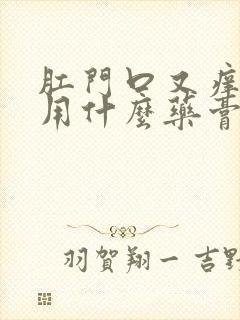 肛門口又癢
用什麼藥膏
羽賀翔一 吉野